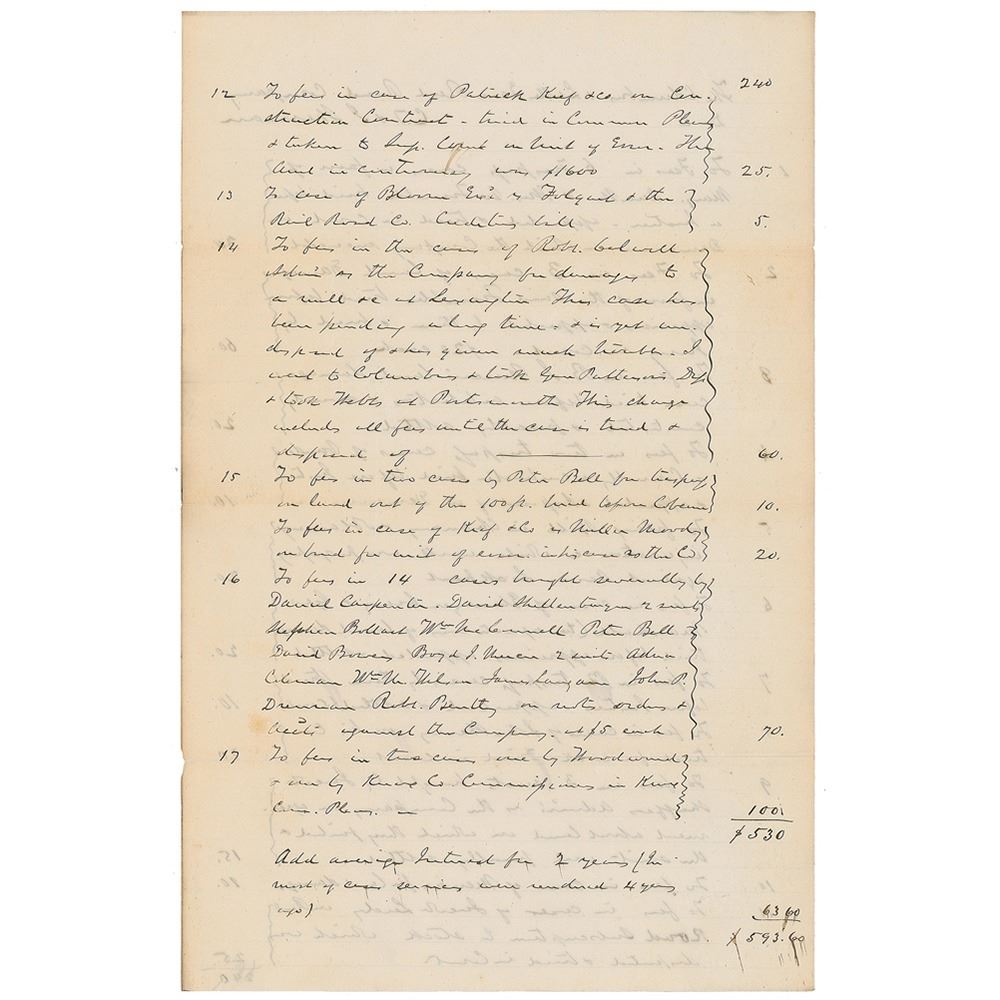 240
12 To fees in case of Patrick Kief & co on Con-
struction Contract - tried in Common Pleas
& taken to Sup. Court on Writ of Error. The
Amt in controversy was $1600 25.
13 To case of Bloom Exr. vs & the
Rail Road Co. Creditors bill 5.
14 To fees in the case of Robt. Colwell
Adm. vs the Company for damages to
a mill &c at Lexington This case has
been pending a long time - & is yet un-
disposed of & has given much trouble. I
went to Columbus & took Genl Pattersons Dep
& took Webbs at Portsmouth This charge
includes all fees until the case is tried &
disposed of 60.
15 To fees in two cases by Peter Bell for trespass
on land out of the 100 ft. tried before 10.
To fees in case of Kief & Co vs Miller Moody
on bond for writ of error in his case vs the Co 20.
16 To fees in 14 cases brought severally by
Daniel Carpenter. David 2 suits
Stephen Wm McConnell Peter Bell
David Bowers Boyd & J. 2 suits Adam
Coleman Wm M. Wilson James John P.
Drennan Robt. Bentley on notes orders &
accts against the Company. at $5 each 70.
17 To fees in two cases one by Woodward
& one by Knox Co Commissioners in Knox
Com. Pleas. — 100
$530
Add average Interest for 2 years (In
most of cases services were rendered 4 years
ago) 63 60
$593.60